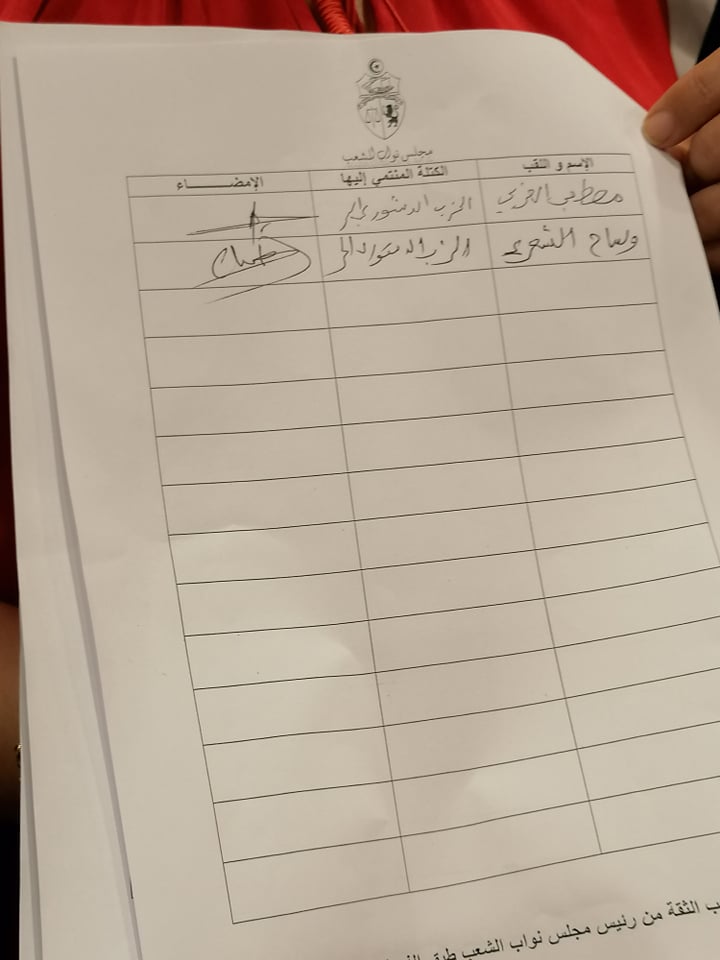 مجلس نواب الشعب
الإسم و اللقب الكتلة المنتمي إليها الإمضـــــــاء
الحزب الدستوري الحر
وسام الشعري الحزب الدستوري الحر
ب الثقة من رئيس مجلس نواب الشعب طبق